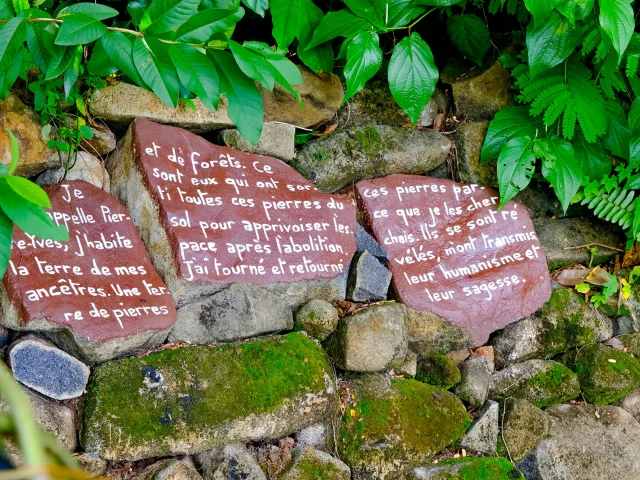 Je
m'appelle Pier-
re-Yves, j'habite
la terre de mes
ancêtres. Une ter-
re de pierres
et de forêts. Ce
sont eux qui ont sor-
ti toutes ces pierres du
sol pour apprivoiser les
pace après l'abolition.
J'ai tourné et retourné
ces pierres par-
ce que je les cher
chais. Ils se sont ré
vélés, m'ont transmis
leur humanisme et
leur sagesse.